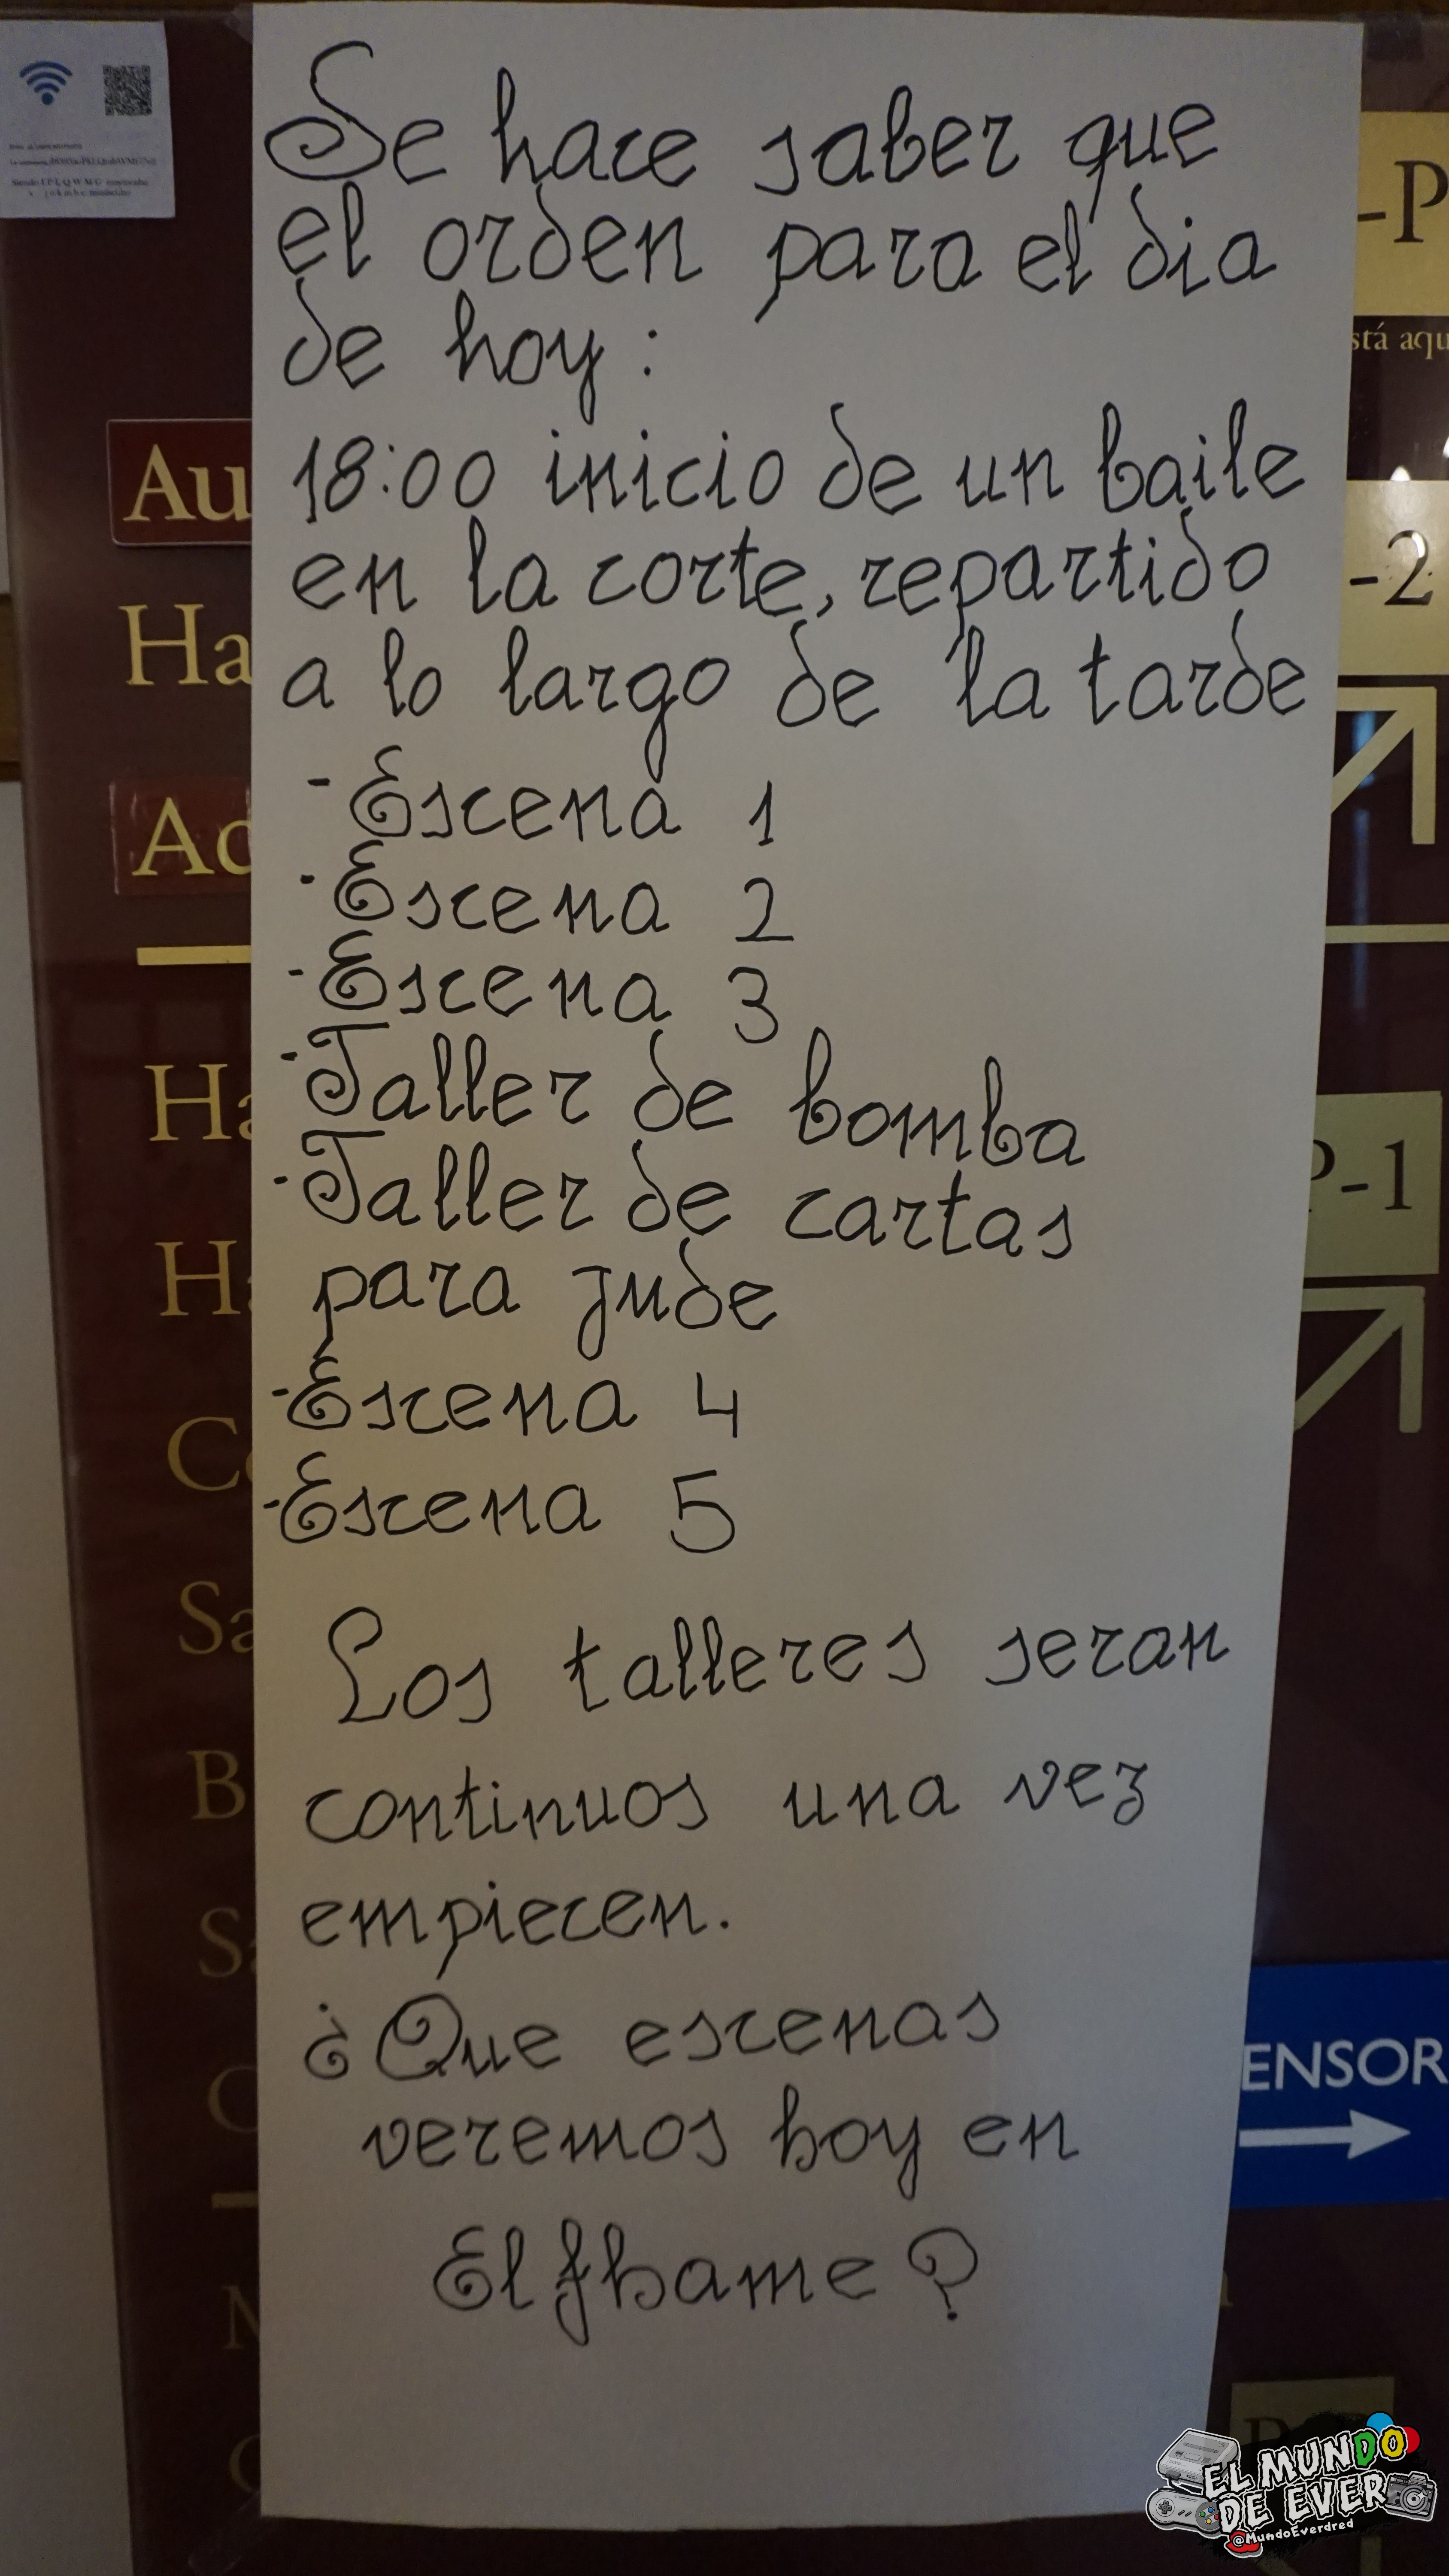 Se hace saber que
el orden para el dia
de hoy:
18:00 inicio de un baile
en la corte, repartido
a lo largo de la tarde
- Escena 1
- Escena 2
- Escena 3
- Taller de bomba
- Taller de cartas
para jude
- Escena 4
- Escena 5
Los talleres seran
continuos una vez
empiecen.
¿Que escenas
veremos hoy en
Elfhame?
Au
Ha
Ad
Ha
Ha
Sa
B
-P
stá aqu
-2
P-1
ENSOR
EL MUNDO
DE EVER
@MundoEverdred